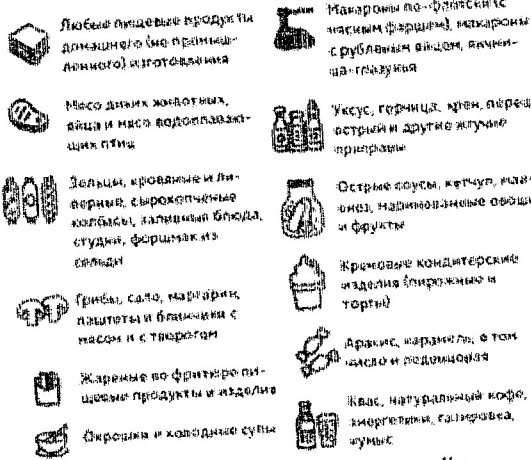 Любые пищевые продукты
домашнего (не промыш-
ленного) изготовления
Мясо диких животных,
яйца и мясо водоплаваю-
щих птиц
Зельцы, кровяные и ли-
верные, сырокопченые
колбасы, заливные блюда,
студни, форшмак из
сельди
Грибы, сало, маргарин,
паштеты и блинчики с
мясом и с творогом
Жареные во фритюре пи-
щевые продукты и изделия
Окрошки и холодные супы
Макароны по-флотски (с
мясным фаршем), макароны
с рубленым яйцом, яични-
ца-глазунья
Уксус, горчица, хрен, перец
острый и другие жгучие
приправы
Острые соусы, кетчуп, май-
онез, маринованные овощи
и фрукты
Кремовые кондитерские
изделия (пирожные и
торты)
Арахис, карамель, в том
числе и леденцовая
Квас, натуральный кофе,
энергетики, газировка,
кумыс